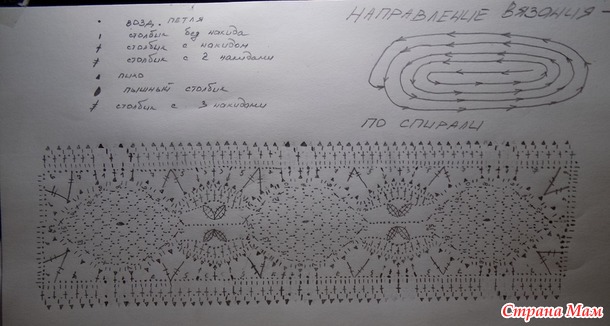 • возд. петля
столбик без накида
столбик с накидом
столбик с 2 накидами
пико
пышный столбик
столбик с 3 накидами
НАПРАВЛЕНИЕ ВЯЗАНИЯ -
ПО СПИРАЛИ
Страна Мам